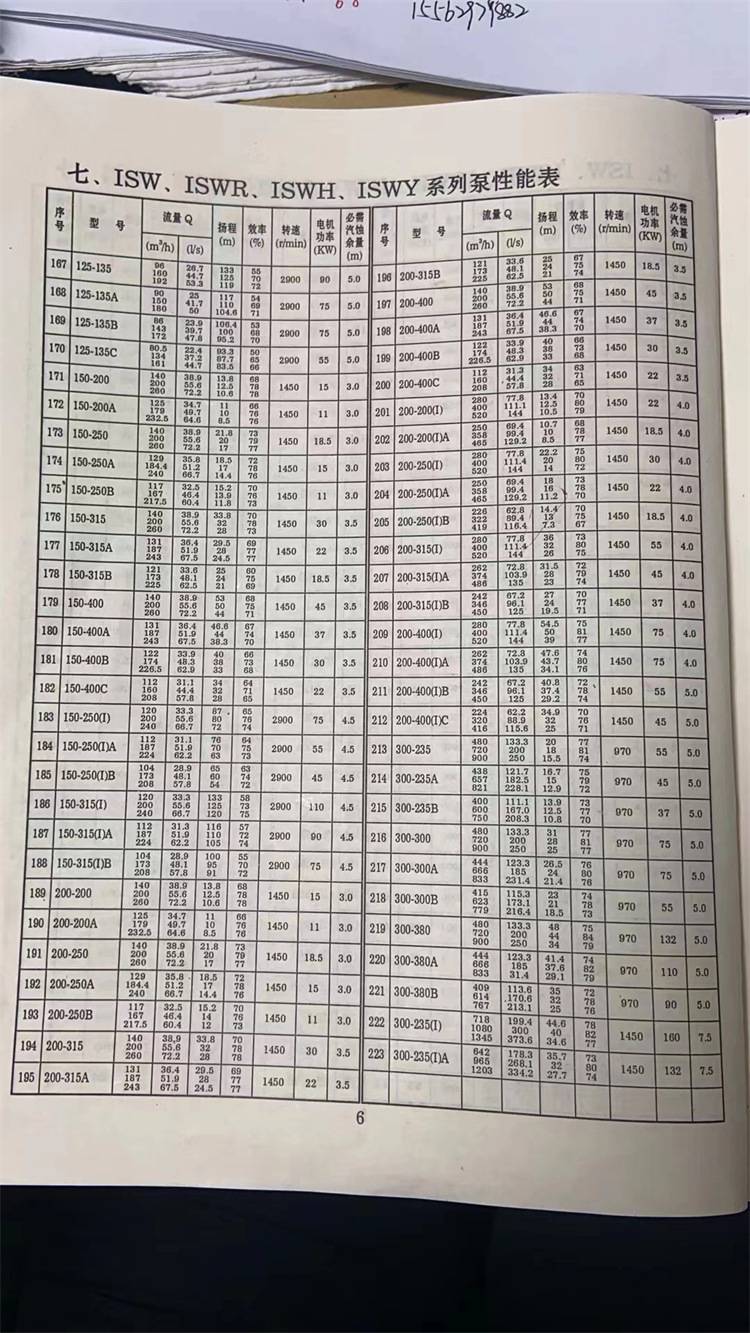 15562979882
七、ISW、ISWR、ISWH、ISWY 系列泵性能表
序号 型 号 流量 Q (m³/h) (l/s) 扬程 (m) 效率 (%) 转速 (r/min) 电机功率 (KW) 必需汽蚀余量 (m)
167 125-135 96 160 192 26.7 44.7 53.3 133 125 119 55 70 72 2900 90 5.0
168 125-135A 90 150 180 25 41.7 50 117 110 104.6 54 69 71 2900 75 5.0
169 125-135B 86 143 172 23.9 39.7 47.8 106.4 100 95.2 53 68 70 2900 75 5.0
170 125-135C 80.5 134 161 22.4 37.2 44.7 93.3 87.7 83.5 50 65 66 2900 55 5.0
171 150-200 140 200 260 38.9 55.6 72.2 13.8 12.5 10.6 68 78 78 1450 15 3.0
172 150-200A 125 179 232.5 34.7 49.7 64.6 11 10 8.5 66 76 76 1450 11 3.0
173 150-250 140 200 260 38.9 55.6 72.2 21.8 20 17 73 79 77 1450 18.5 3.0
174 150-250A 129 184.4 240 35.8 51.2 66.7 18.5 17 14.4 72 78 76 1450 15 3.0
175 150-250B 117 167 217.5 32.5 46.4 60.4 15.2 13.9 11.8 70 76 73 1450 11 3.0
176 150-315 140 200 260 38.9 55.6 72.2 33.8 32 28 70 78 73 1450 30 3.5
177 150-315A 131 187 243 36.4 51.9 67.5 29.5 28 24.5 69 77 77 1450 22 3.5
178 150-315B 121 173 225 33.6 48.1 62.5 25 24 21 60 75 69 1450 18.5 3.5
179 150-400 140 200 260 38.9 55.6 72.2 53 50 44 68 75 71 1450 45 3.5
180 150-400A 131 187 243 36.4 51.9 67.5 46.6 44 38.3 67 74 70 1450 37 3.5
181 150-400B 122 174 226.5 33.9 48.3 62.9 40 38 33 66 73 68 1450 30 3.5
182 150-400C 112 160 208 31.1 44.4 57.8 34 32 28 64 71 65 1450 22 3.5
183 150-250(I) 120 200 240 33.3 55.6 66.7 87 80 72 65 76 74 2900 75 4.5
184 150-250(I)A 112 187 224 31.1 51.9 62.2 76 70 63 64 75 73 2900 55 4.5
185 150-250(I)B 104 173 208 28.9 48.1 57.8 65 60 54 63 74 72 2900 45 4.5
186 150-315(I) 120 200 240 33.3 55.6 66.7 133 125 120 58 73 75 2900 110 4.5
187 150-315(I)A 112 187 224 31.3 51.9 62.2 116 110 105 57 72 74 2900 90 4.5
188 150-315(I)B 104 173 208 28.9 48.1 57.8 100 95 91 55 70 72 2900 75 4.5
189 200-200 140 200 260 38.9 55.6 72.2 13.8 12.5 10.6 68 78 78 1450 15 3.0
190 200-200A 125 179 232.5 34.7 49.7 64.6 11 10 8.5 66 76 76 1450 11 3.0
191 200-250 140 200 260 38.9 55.6 72.2 21.8 20 17 73 79 77 1450 18.5 3.0
192 200-250A 129 184.4 240 35.8 51.2 66.7 18.5 17 14.4 72 78 76 1450 15 3.0
193 200-250B 117 167 217.5 32.5 46.4 60.4 15.2 14 12 70 76 73 1450 11 3.0
194 200-315 140 200 260 38.9 55.6 72.2 33.8 32 28 70 78 78 1450 30 3.5
195 200-315A 131 187 243 36.4 51.9 67.5 29.5 28 24.5 69 77 77 1450 22 3.5
序号 型 号 流量 Q (m³/h) (l/s) 扬程 (m) 效率 (%) 转速 (r/min) 电机功率 (KW) 必需汽蚀余量 (m)
196 200-315B 121 173 225 33.6 48.1 62.5 25 24 21 67 75 74 1450 18.5 3.5
197 200-400 140 200 260 38.9 55.6 72.2 53 50 44 68 75 71 1450 45 3.5
198 200-400A 131 187 243 36.4 51.9 67.5 46.6 44 38.3 67 74 70 1450 37 3.5
199 200-400B 122 174 226.5 33.9 48.3 62.9 40 38 33 66 73 68 1450 30 3.5
200 200-400C 112 160 208 31.3 44.4 57.8 34 32 28 63 71 65 1450 22 3.5
201 200-200(I) 280 400 520 77.8 111.1 144 13.4 12.5 10.5 70 80 79 1450 22 4.0
202 200-200(I)A 250 358 465 69.4 99.4 129.2 10.7 10 8.5 68 78 77 1450 18.5 4.0
203 200-250(I) 280 400 520 77.8 111.4 144 22.2 20 14 75 80 72 1450 30 4.0
204 200-250(I)A 250 358 465 69.4 99.4 129.2 18 16 11.2 73 78 70 1450 22 4.0
205 200-250(I)B 226 322 419 62.8 89.4 116.4 14.4 13 7.3 70 75 67 1450 18.5 4.0
206 200-315(I) 280 400 520 77.8 111.4 144 36 32 26 73 80 75 1450 55 4.0
207 200-315(I)A 262 374 486 72.8 103.9 135 31.5 28 23 72 79 74 1450 45 4.0
208 200-315(I)B 242 346 450 67.2 96.1 125 27 24 19.5 70 77 71 1450 37 4.0
209 200-400(I) 280 400 520 77.8 111.4 144 54.5 50 39 75 81 77 1450 75 4.0
210 200-400(I)A 262 374 486 72.8 103.9 135 47.6 43.7 34.1 74 80 76 1450 75 4.0
211 200-400(I)B 242 346 450 67.2 96.1 125 40.8 37.4 29.2 72 78 74 1450 55 5.0
212 200-400(I)C 224 320 416 62.2 88.9 115.6 34.9 32 25 70 76 71 1450 45 5.0
213 300-235 480 720 900 133.3 200 250 20 18 15.5 77 81 74 970 55 5.0
214 300-235A 438 657 821 121.7 182.5 228.1 16.7 15 12.9 75 79 72 970 45 5.0
215 300-235B 400 600 750 111.1 167.0 208.3 13.9 12.5 10.8 73 77 70 970 37 5.0
216 300-300 480 720 900 133.3 200 250 31 28 25 77 81 77 970 75 5.0
217 300-300A 444 666 833 123.3 185 231.4 26.5 24 21.4 76 80 76 970 75 5.0
218 300-300B 415 623 779 115.3 173.1 216.4 23 21 18.5 74 78 73 970 55 5.0
219 300-380 480 720 900 133.3 200 250 48 44 34 75 84 79 970 132 5.0
220 300-380A 444 666 833 123.3 185 31.4 41.4 37.6 29.1 74 82 79 970 110 5.0
221 300-380B 409 614 767 113.6 170.6 213.1 35 32 25 72 78 76 970 90 5.0
222 300-235(I) 718 1080 1345 199.4 300 373.6 44.6 40 34.6 78 82 77 1450 160 7.5
223 300-235(I)A 642 965 1203 178.3 268.1 334.2 35.7 32 27.7 73 80 74 1450 132 7.5
6